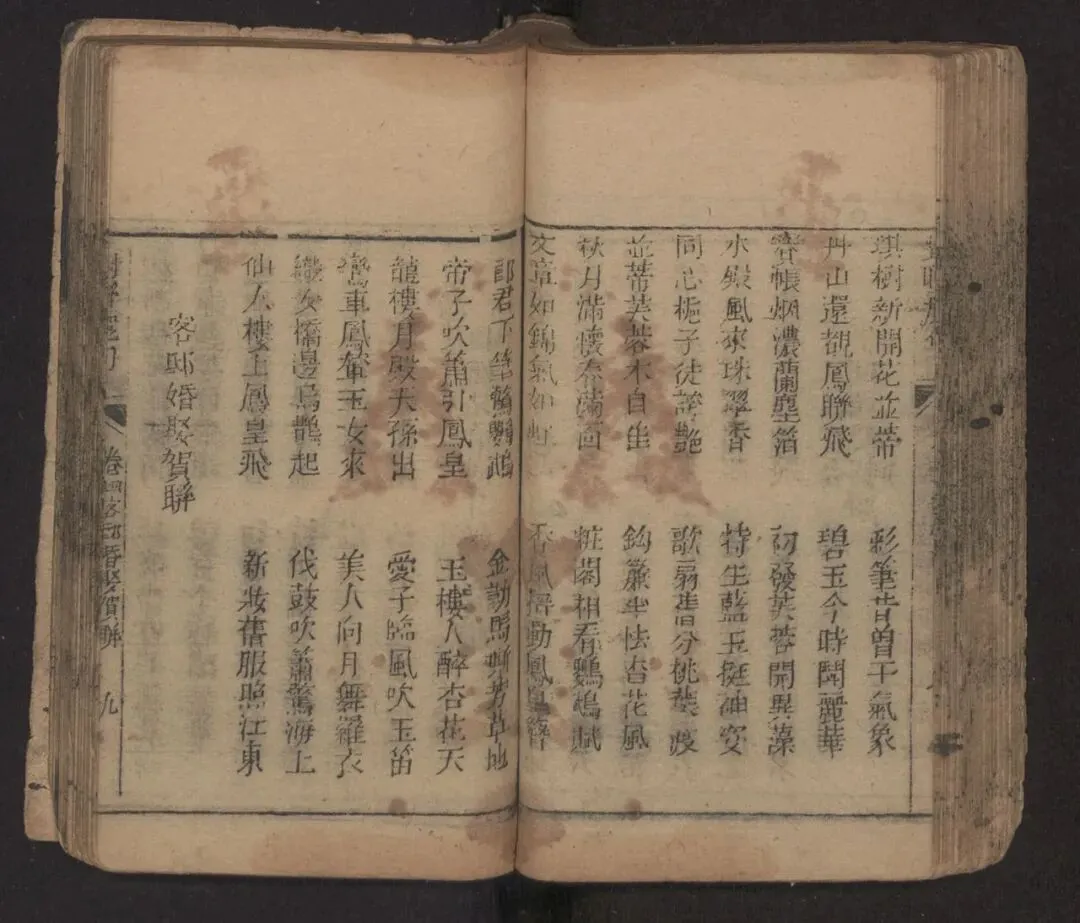 琪樹新開花並蒂 彩筆昔曾干氣象
丹山還覩鳳聯飛 碧玉今時鬪麗華
寶帳烟濃蘭麈箔 初發芙蓉開異藻
水殿風來珠翠香 特生藍玉挺神姿
同心梔子徒誇艷 歌扇惜分桃葉渡
並蒂芙蓉本自生 鈎簾半怯杏花風
秋月滿懷奏蘭 粧閣相看鸚鵡賦
文章如錦氣如虹 香風搖動鳳凰簪
郎君下筆驚鸚鵡 金勒馬嘶芳草地
帝子吹簫引鳳皇 玉樓人醉杏花天
龍樓月殿天孫出 愛子臨風吹玉笛
鸞車鳳輦玉女來 美人向月舞羅衣
織女橋邊烏鵲起 伐鼓吹簫驚海上
仙人樓上鳳皇飛 新妝舊服照江東
客邸婚娶賀聯
卷四客邸婚娶賀聯 九